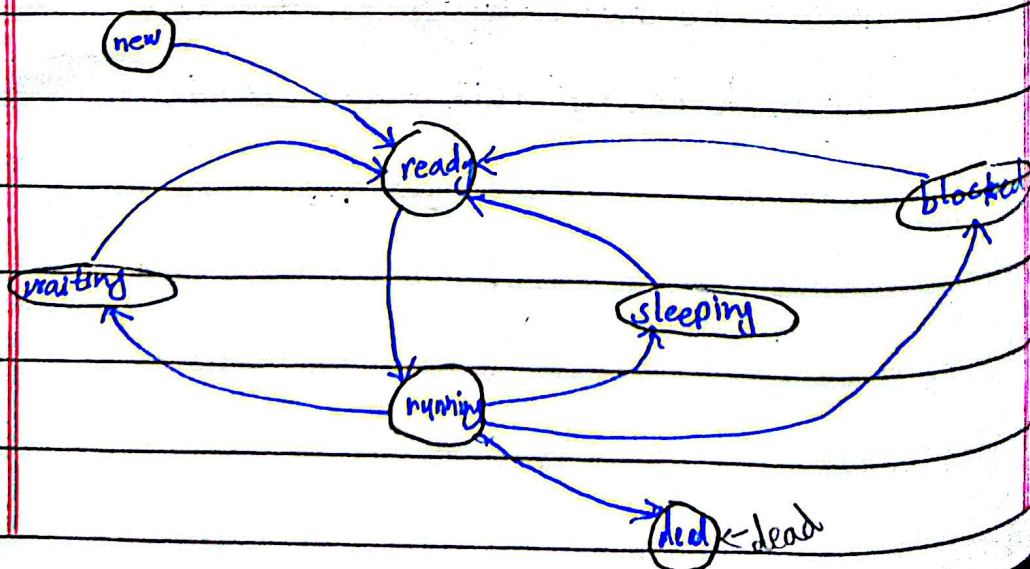 new
ready
blocked
waiting
sleeping
running
dead
dead